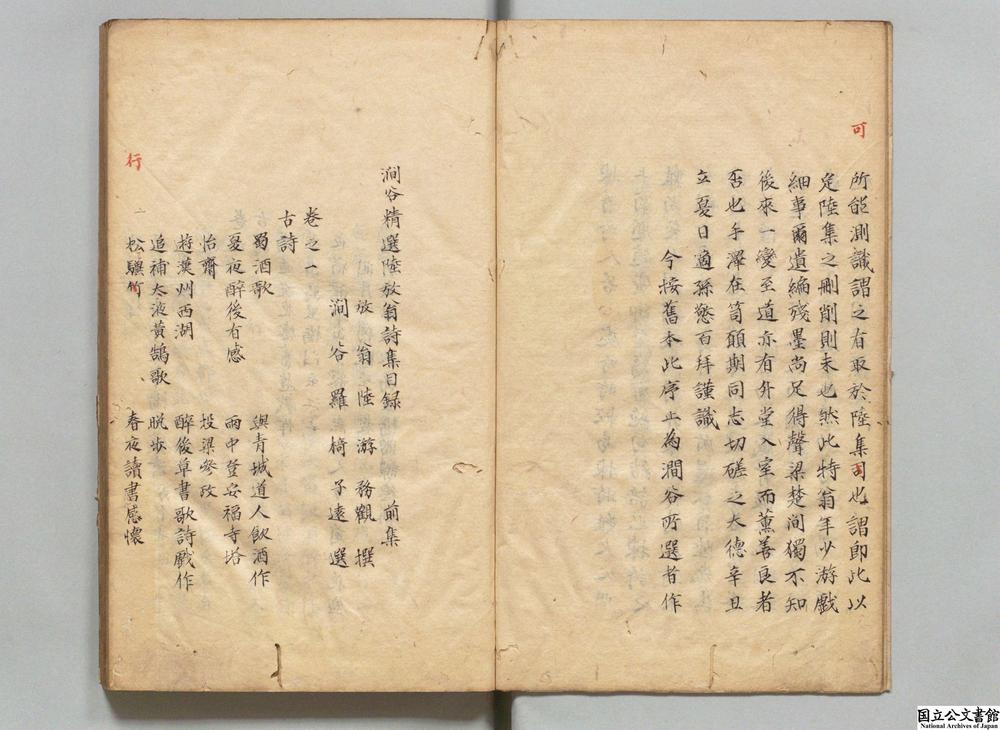 可
所能測識謂之有取於陸集可也謂即此以
定陸集之刪削則未也然此特翁年少游戲
細事爾遺編殘墨尚足得聲梁楚間獨不知
後來一變至道亦有升堂入室而薰善良者
否也手澤在笥頋期同志切磋之大德辛丑
立夏日適孫憼百拜謹識
今按舊本此序止為澗谷所選者作
澗谷精選陸放翁詩集目録 前集
放翁 陸游 務觀 撰
澗谷 羅椅 子遠 選
卷之一
古詩
蜀酒歌 與青城道人飲酒作
夏夜醉後有感 雨中登安福寺塔
怡齋 投梁參政
遊漢州西湖 醉後草書歌詩戯作
追補太液黃鵠歌 晚步
松驥 春夜讀書感懷
行
国立公文書館
National Archives of Japan